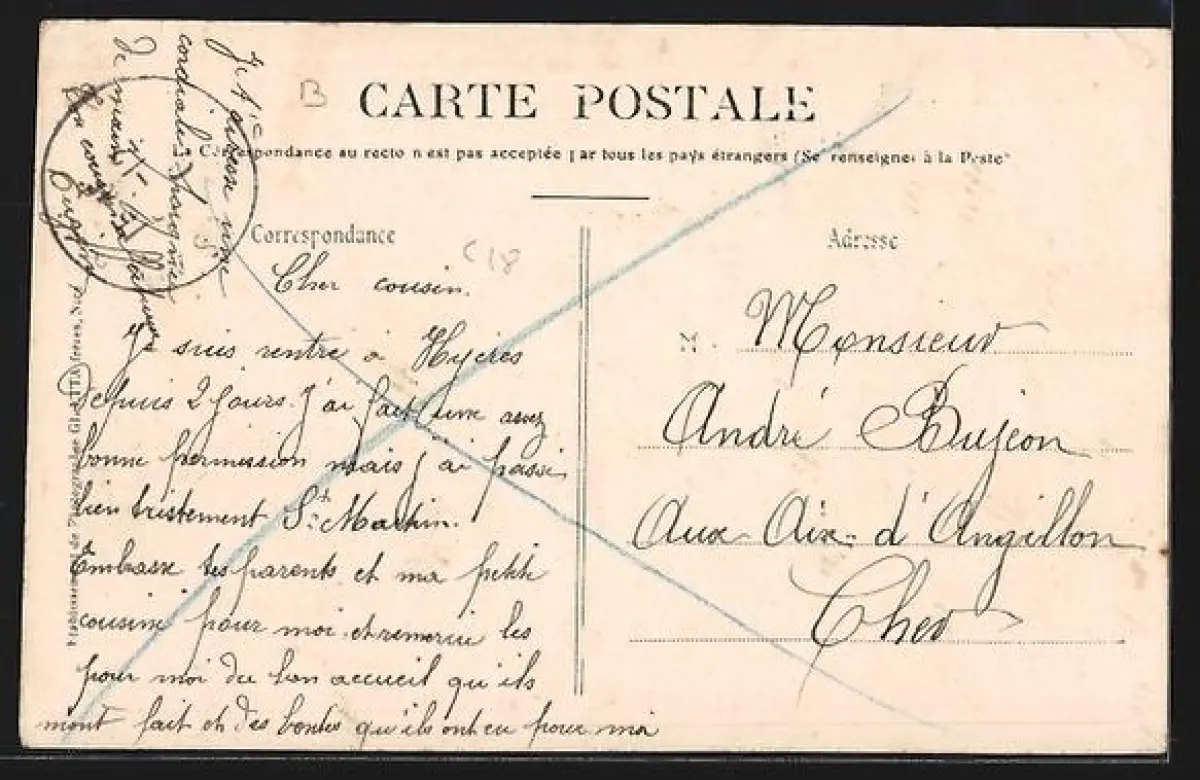 CARTE POSTALE
La Correspondance au recto n'est pas acceptée par tous les pays étrangers (Se renseigner à la Poste)
Correspondance
Adresse
B
C18
Cher cousin.
Je suis rentré à Hyères
depuis 2 jours. J'ai fait une assez
bonne permission mais j'ai passé
bien tristement St Martin.
Embrasse tes parents et ma petite
cousine pour moi et remercie les
pour moi du bon accueil qu'ils
mont fait et des bontés qu'ils ont eu pour moi
Je t'adresse une
cordiale
de main
Ton cousin
M.
Monsieur
André Bujeon
Aux Aix-d'Angillon
Cher